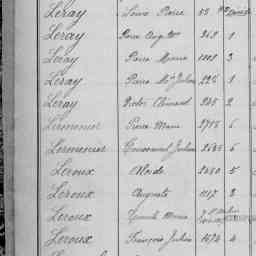 Leray Louis Pierre 55
Leray Pierre Aug.te 262 1
Leray Pierre Marie 1008 3
Leray Pierre M. Julien 226 1
Leray Victor Edouard 205 2
Lermenier Pierre Marie 2715 6
Lermenier Toussaint Julien 2685 6
Leroux Aloïde 2450 5
Leroux Auguste 1117 3
Leroux Marie
Leroux François Julien 1674 4